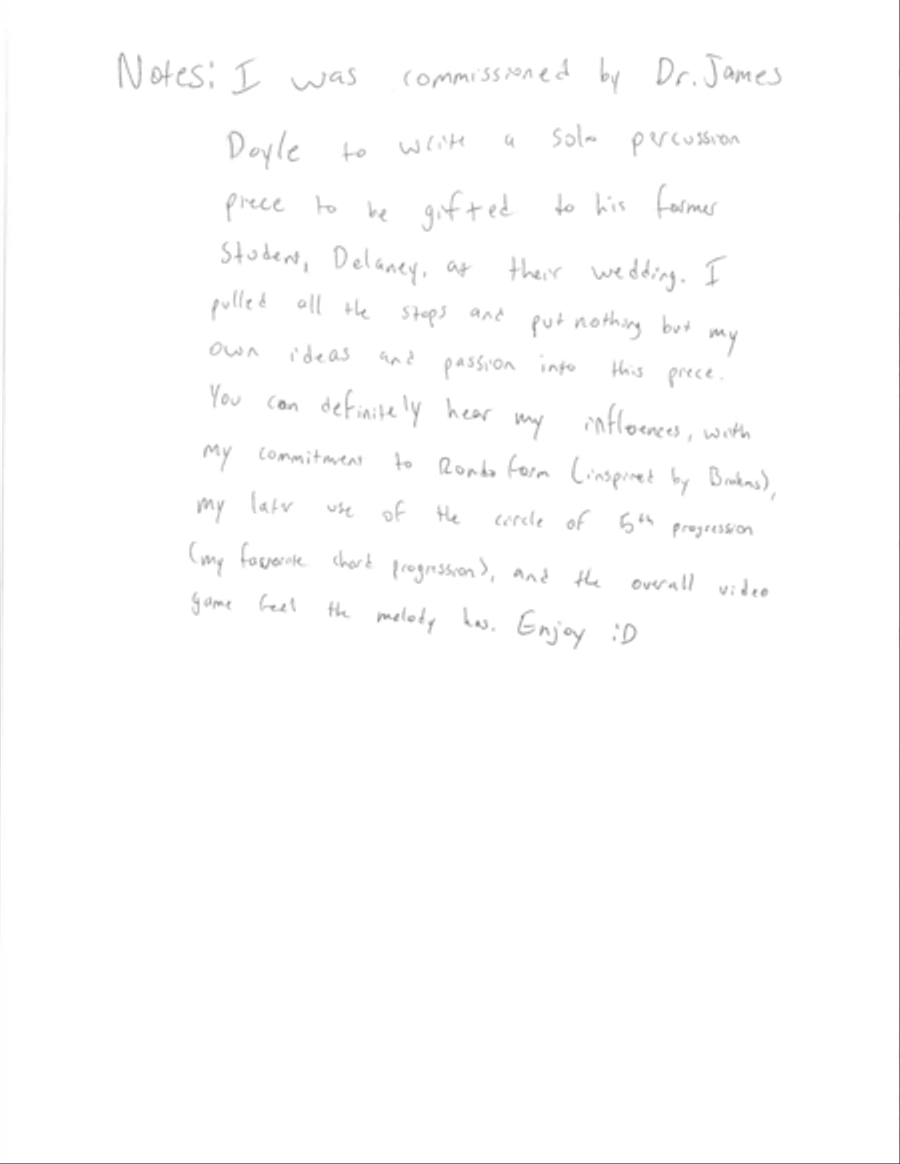 Notes: I was commissioned by Dr. James
Doyle to write a solo percussion
piece to be gifted to his former
Student, Delaney, at their wedding. I
pulled all the stops and put nothing but my
own ideas and passion into this piece.
You can definitely hear my influences, with
my commitment to Rondo form (inspired by Brahms),
my later use of the circle of 5th progression
(my favorite chord progression), and the overall video
game feel the melody has. Enjoy :D